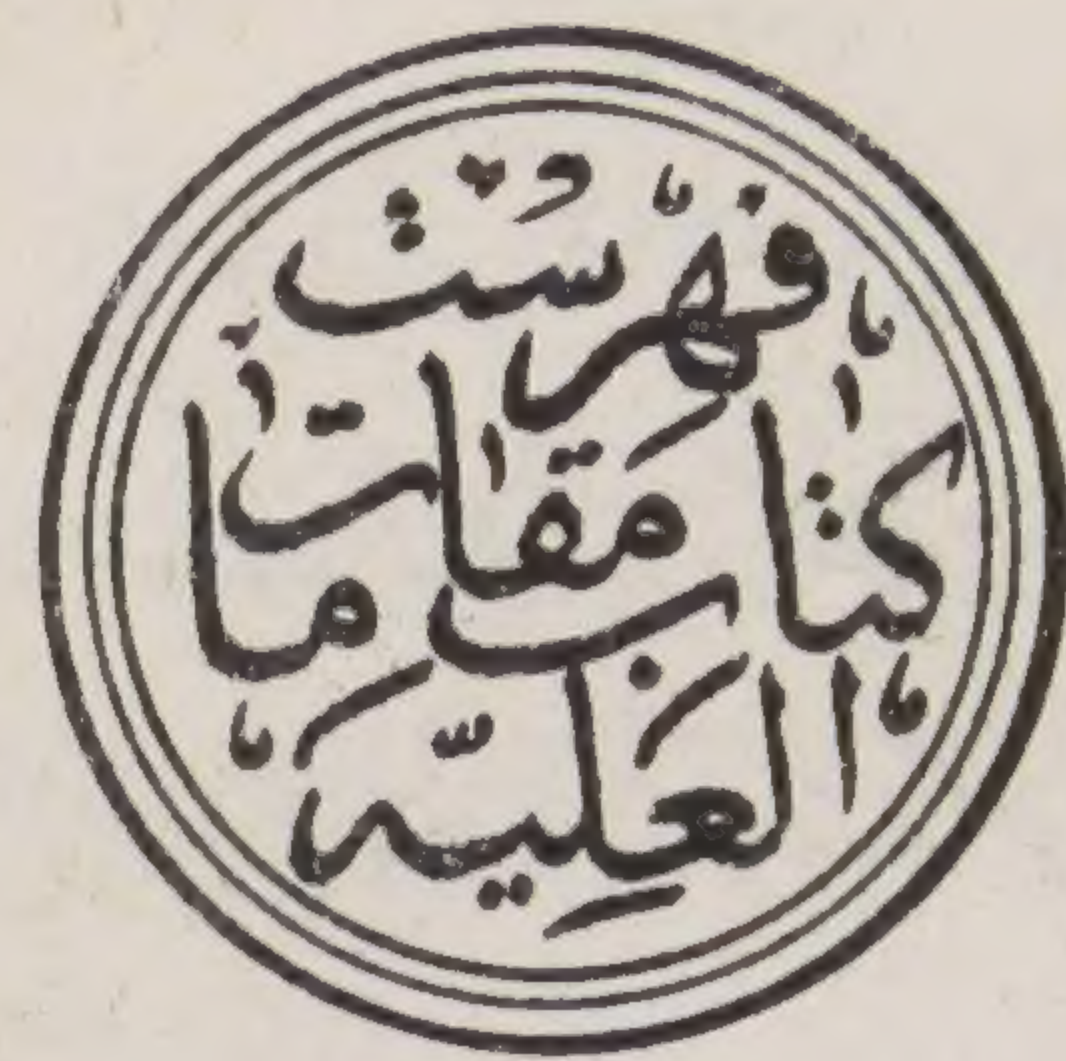 فهرست
كتاب مقامات
العليه